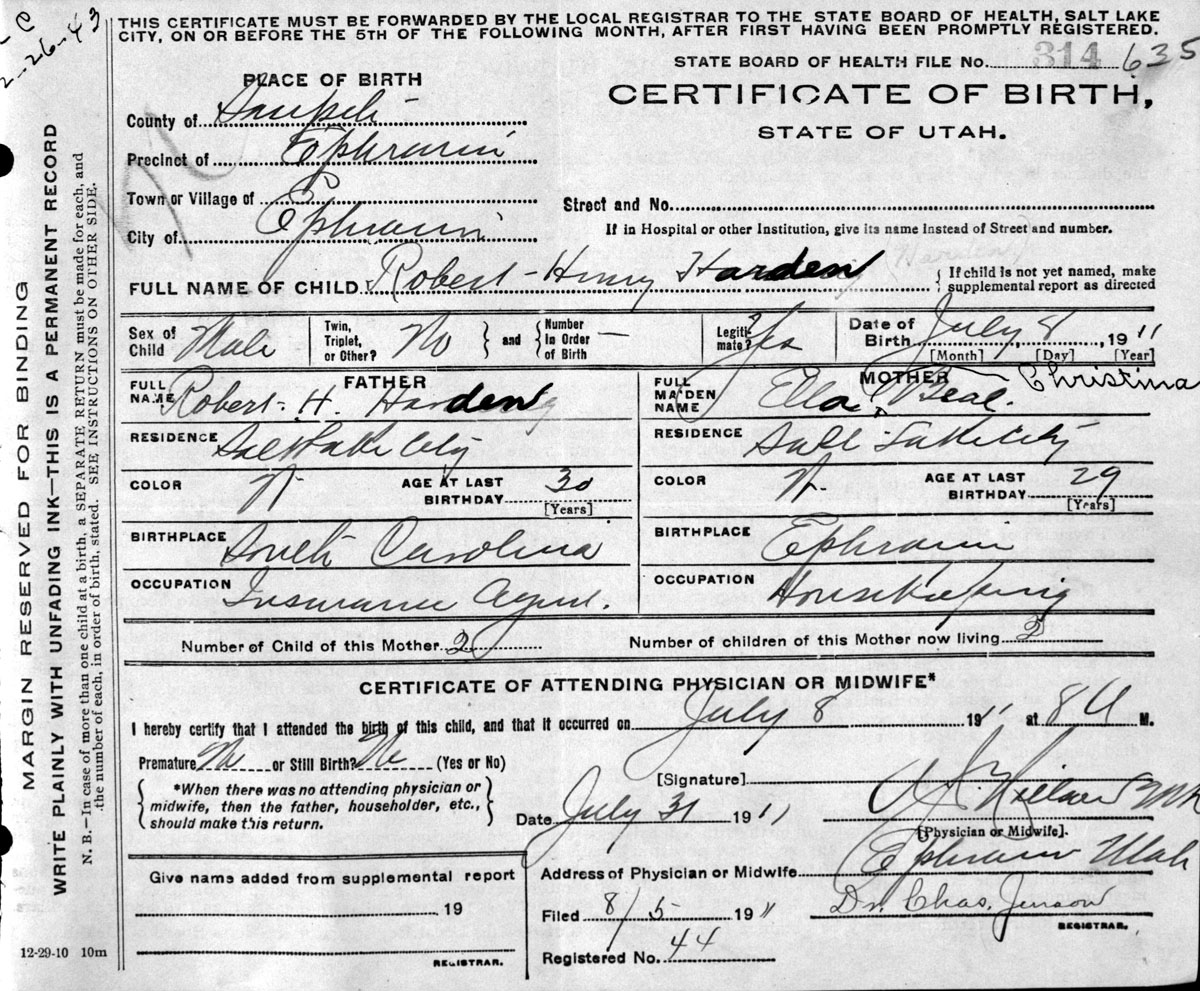 2-26-43
THIS CERTIFICATE MUST BE FORWARDED BY THE LOCAL REGISTRAR TO THE STATE BOARD OF HEALTH, SALT LAKE
CITY, ON OR BEFORE THE 5TH OF THE FOLLOWING MONTH, AFTER FIRST HAVING BEEN PROMPTLY REGISTERED.
STATE BOARD OF HEALTH FILE No. 314 635
PLACE OF BIRTH
CERTIFICATE OF BIRTH,
STATE OF UTAH.
County of
Precinct of Ephraim
Town or Village of
City of Ephraim
Street and No.
If in Hospital or other Institution, give its name instead of Street and number.
(Harden)
FULL NAME OF CHILD Robert Henry Harden
{ If child is not yet named, make
supplemental report as directed
Sex of Child Male
Twin, Triplet, or Other? No } and { Number In Order of Birth —
Legitimate? Yes
Date of Birth July 8, 1911
[Month] [Day] [Year]
FATHER
FULL NAME Robert H. Harden
RESIDENCE Salt Lake City
COLOR W
AGE AT LAST BIRTHDAY 30
[Years]
BIRTHPLACE South Carolina
OCCUPATION Insurance Agent.
MOTHER
FULL MAIDEN NAME Ella Christina Beal.
RESIDENCE Salt Lake City
COLOR W.
AGE AT LAST BIRTHDAY 29
[Years]
BIRTHPLACE Ephraim
OCCUPATION Housekeeping
Number of Child of this Mother 2
Number of children of this Mother now living 2
CERTIFICATE OF ATTENDING PHYSICIAN OR MIDWIFE*
I hereby certify that I attended the birth of this child, and that it occurred on July 8 1911 at 8 M.
Premature No or Still Birth? No (Yes or No)
{ *When there was no attending physician or
midwife, then the father, householder, etc.,
should make this return. }
[Signature]
Date July 31 1911
[Physician or Midwife].
Address of Physician or Midwife Ephraim Utah
Give name added from supplemental report
19
REGISTRAR.
Filed 8/5 1911
Dr. Chas. Jenson
REGISTRAR.
Registered No. 44
12-29-10 10m
MARGIN RESERVED FOR BINDING
WRITE PLAINLY WITH UNFADING INK—THIS IS A PERMANENT RECORD
N. B.—In case of more than one child at a birth, a SEPARATE RETURN must be made for each, and
the number of each, in order of birth, stated. SEE INSTRUCTIONS ON OTHER SIDE.